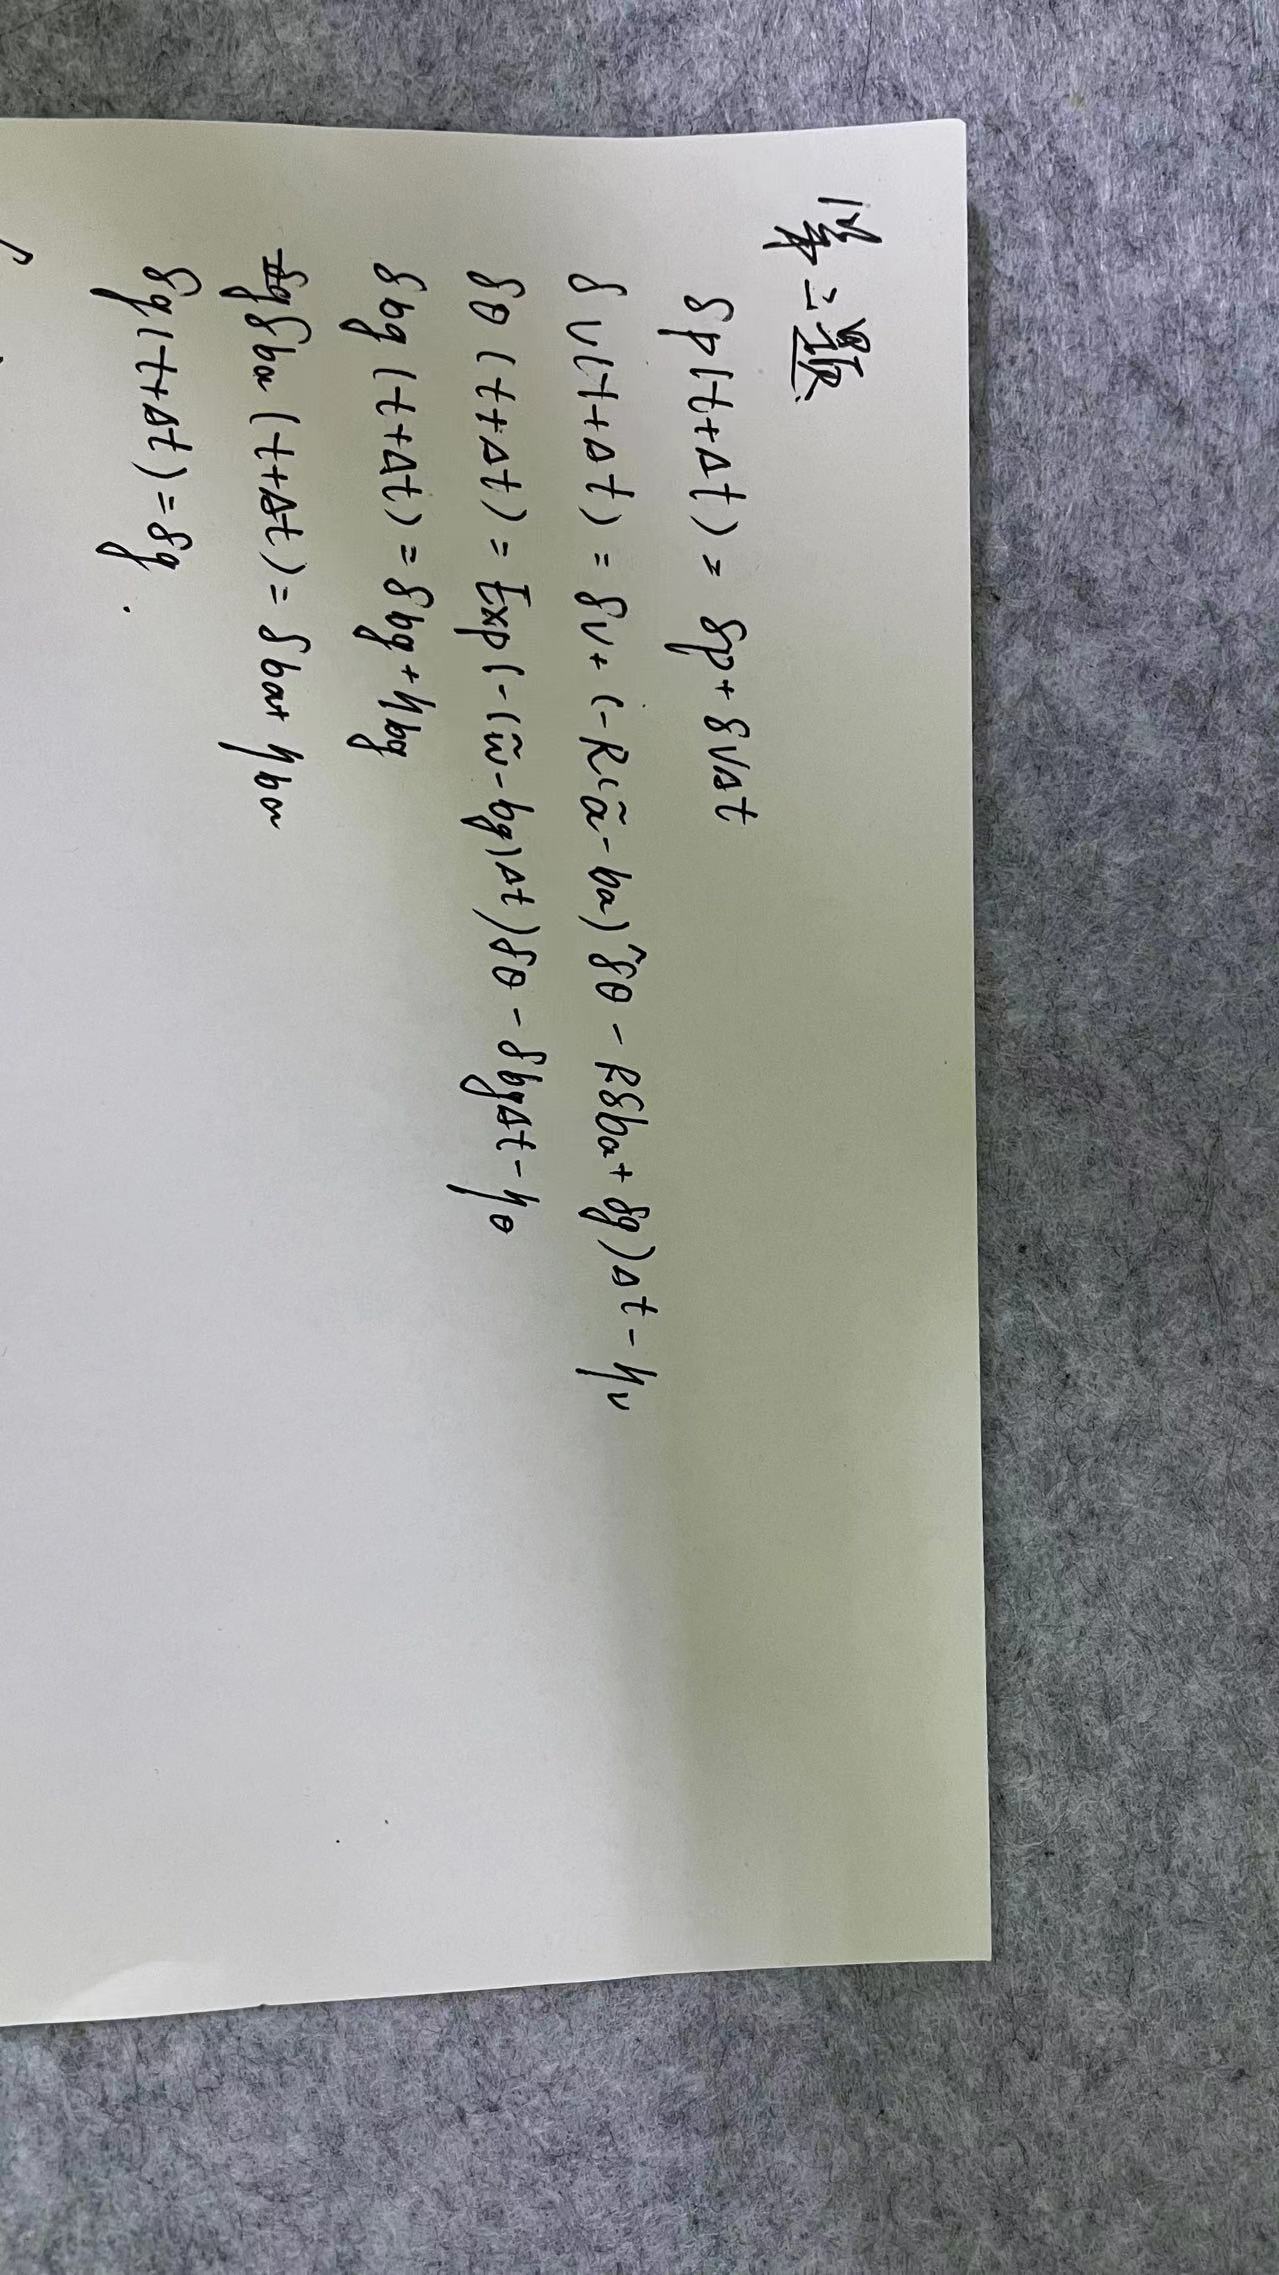 第二题
δp(t+Δt) = δp+δvΔt
δv(t+Δt) = δv+(-R(ã-ba)^δθ-Rδba+δg)Δt-ηv
δθ(t+Δt) = Exp(-(w̃-bg)Δt)δθ-δbgΔt-ηθ
δbg(t+Δt) = δbg+ηbg
δba(t+Δt) = δba+ηba
δg(t+Δt) = δg.